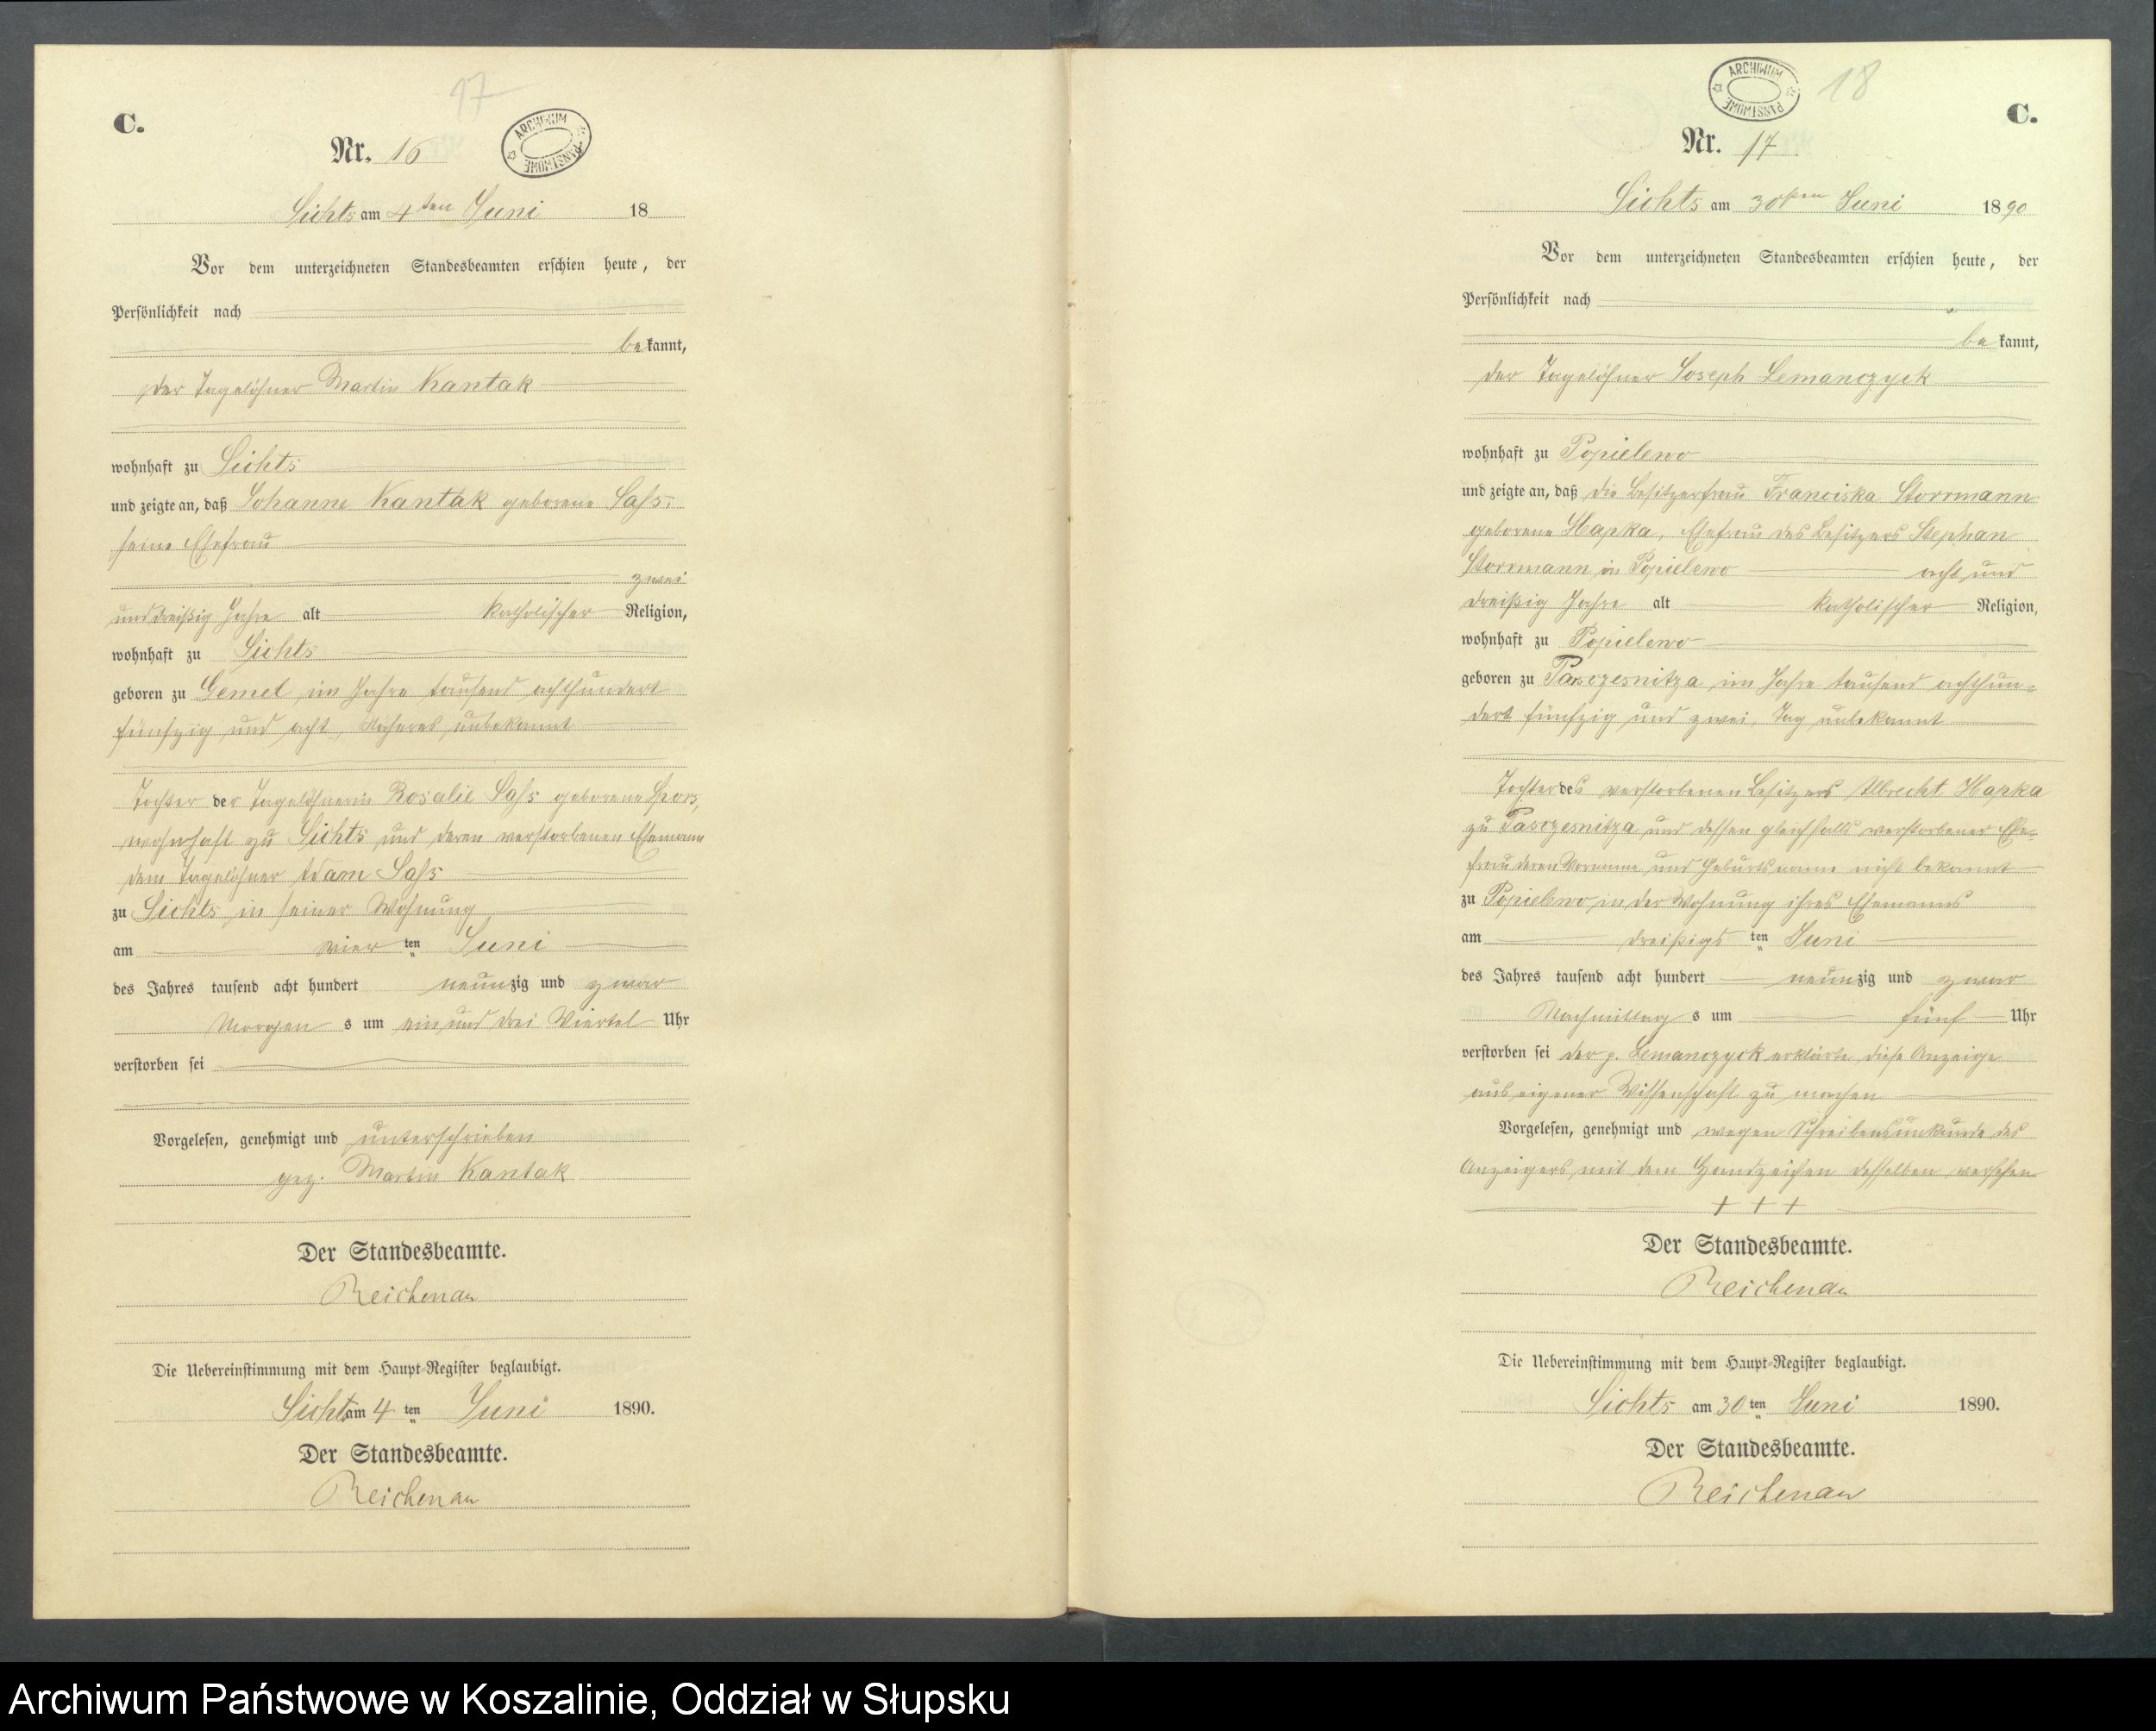 17
C.
Nr. 16
ARCHIWUM PAŃSTWOWE
Lichts am 4ten Juni 18
Vor dem unterzeichneten Standesbeamten erschien heute, der
Persönlichkeit nach
bekannt,
der Tagelöhner Martin Kantak
wohnhaft zu Lichts
und zeigte an, daß Johanne Kantak geborene Saß,
seine Ehefrau
zwei
und dreißig Jahre alt katholischer Religion,
wohnhaft zu Lichts
geboren zu Gemel, im Jahre tausend achthundert
fünfzig und acht, Näheres unbekannt
Tochter der Tagelöhnerin Rosalie Saß geborene Spors,
wohnhaft zu Lichts und deren verstorbenen Ehemann
dem Tagelöhner Adam Saß
zu Lichts in seiner Wohnung
am vier ten Juni
des Jahres tausend acht hundert neunzig und zwar
Morgens um ein und drei Viertel Uhr
verstorben sei
Vorgelesen, genehmigt und unterschrieben
gez. Martin Kantak
Der Standesbeamte.
Reichenau
Die Uebereinstimmung mit dem Haupt-Register beglaubigt.
Lichts am 4 ten Juni 1890.
Der Standesbeamte.
Reichenau
ARCHIWUM PAŃSTWOWE
18
C.
Nr. 17
Lichts am 30sten Juni 1890
Vor dem unterzeichneten Standesbeamten erschien heute, der
Persönlichkeit nach
bekannt,
der Tagelöhner Joseph Lemanczyck
wohnhaft zu Popielewo
und zeigte an, daß die Besitzerfrau Franciska Storrmann
geborene Hapka, Ehefrau des Besitzers Stephan
Storrmann in Popielewo acht und
dreißig Jahre alt katholischer Religion,
wohnhaft zu Popielewo
geboren zu Pasczesnitza im Jahre tausend achthun-
dert fünfzig und zwei, Tag unbekannt
Tochter des verstorbenen Besitzers Albrecht Hapka
zu Pasczesnitza und dessen gleichfalls verstorbener Ehe-
frau deren Vorname und Geburtsname nicht bekannt
zu Popielewo, in der Wohnung ihres Ehemannes
am dreißigs ten Juni
des Jahres tausend acht hundert neunzig und zwar
Nachmittags um fünf Uhr
verstorben sei der p. Lemanczyck erklärte diese Anzeige
aus eigener Wissenschaft zu machen
Vorgelesen, genehmigt und wegen Schreibensunkunde des
Anzeigers mit dem Handzeichen desselben versehen
+ + +
Der Standesbeamte.
Reichenau
Die Uebereinstimmung mit dem Haupt-Register beglaubigt.
Lichts am 30 ten Juni 1890.
Der Standesbeamte.
Reichenau
Archiwum Państwowe w Koszalinie, Oddział w Słupsku